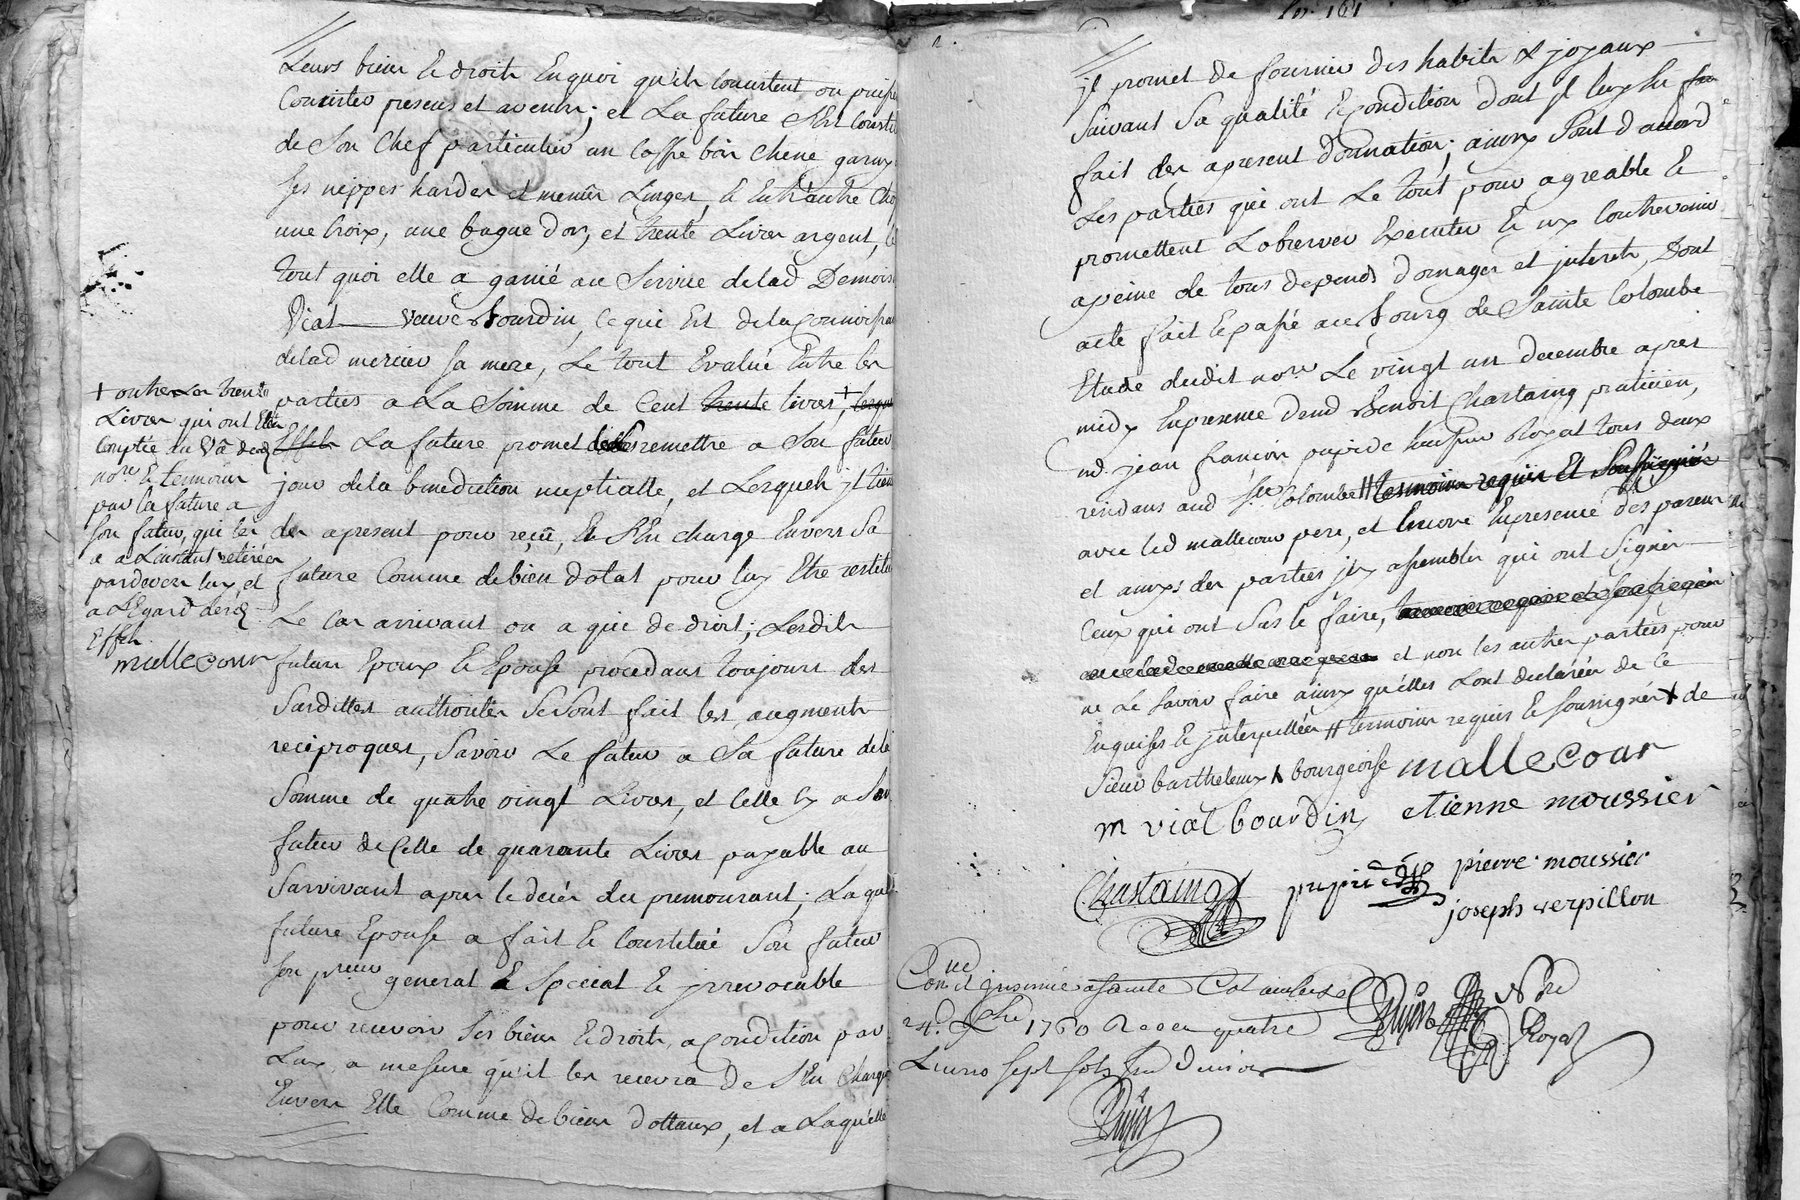 Leurs biens & droits En quoi qu'ils Consistent ou puiss
Consister presens et avenir; et La future s'est Constit
de Son Chef particulier un Coffre bois chene garny
ses nippes hardes et menus Linges, & Entr'autre cho
une Croix, une bague d'or, et trente Livres argent, le
tout quoi elle a ganié au Service de lad Demois
Vial veuve bourdin, Ce qui Est de la Connoissan
de lad mercier sa mere, Le tout Evalué Entre les
parties a La Somme de Cent trente livres, +
Effets La future promet remettre a Son futur
jour de la benediction nuptialle, et Lesquels jl tien
des apresent pour reçu, & s'En charge Envers Sa
future Comme de bien dotal pour luy Etre restitu
Le Cas arrivant ou a qui de droit; Lesdits
futurs Epoux & Epouse procedans toujours des
Sardittes authorités se sont fait les augments
reciproques, Savoir Le futur a Sa future de la
Somme de quatre vingt Livres, et Celle cy a Son
futur de Celle de quarante Livres payable au
Survivant apres le decés du premourant; La que
future Epouse a fait & Constitué Son futur
son preur general & Special & jrrevocable
pour recevoir ses biens & droits, a condition par
Luy, a mesure qu'il les recevra de s'En charger
Envers Elle Comme de biens dottaux, et a Laquelle
+ outre Les trente
Livres qui ont Eté
Comptée au Vû dud
nore & temoins
par la future a
son futur, qui les
a a L'instant retirées
pardevers luy, et
a L'Egard desd.
Effets
mallecour
fo. 161
jl promet de fournir des habits & joyaux
Suivant Sa qualité & condition dont jl luy
fait des apresent donnation; ainsy Sont d'accord
Les parties qui ont Le tout pour agreable &
promettent L'observer Executer & n'y Contrevenir
a peine de tous depends domages et jnterets, Dont
acte fait & passé au bourg de Sainte Colombe
Etude dudit nore Le vingt un decembre apres
midy En presence de md Benoit Chastaing praticien,
md. jean francois papirde huissier Royal tous deux
residans aud Ste Colombe # temoins requis Et Soussignés
avec led mallecour pere, et Encore En presence des parens
et amys des parties jcy assemblés qui ont Signés
Ceux qui ont Sus le faire,
et non les autres parties pour
ne Le Savoir faire ainsy qu'elles L'ont declarées de Ce
Enquises & jnterpellées # temoins requis & soussignés + de
Sieur bartheleuy + bourgeoise mallecour
m vial bourdin etienne moussier
Chastaing pierre moussier
joseph verpillon
Con. et jnsinué a sainte Colombe
24. Xbre 1760 Receu quatre
Livres sept sols Six Deniers
Nre
Royal